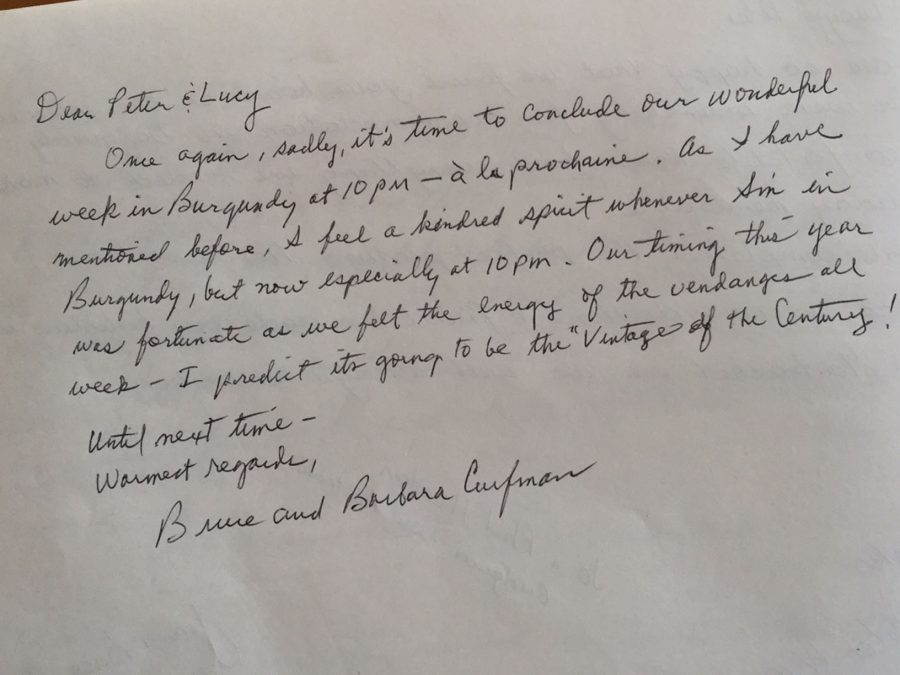 Dear Peter & Lucy
Once again, sadly, it's time to conclude our wonderful
week in Burgundy at 10 pm – à la prochaine. As I have
mentioned before, I feel a kindred spirit whenever I'm in
Burgundy, but now especially at 10 pm. Our timing this year
was fortunate as we felt the energy of the vendanges all
week – I predict its going to be the "Vintage of the Century!
Until next time –
Warmest regards,
Bruce and Barbara Curfman